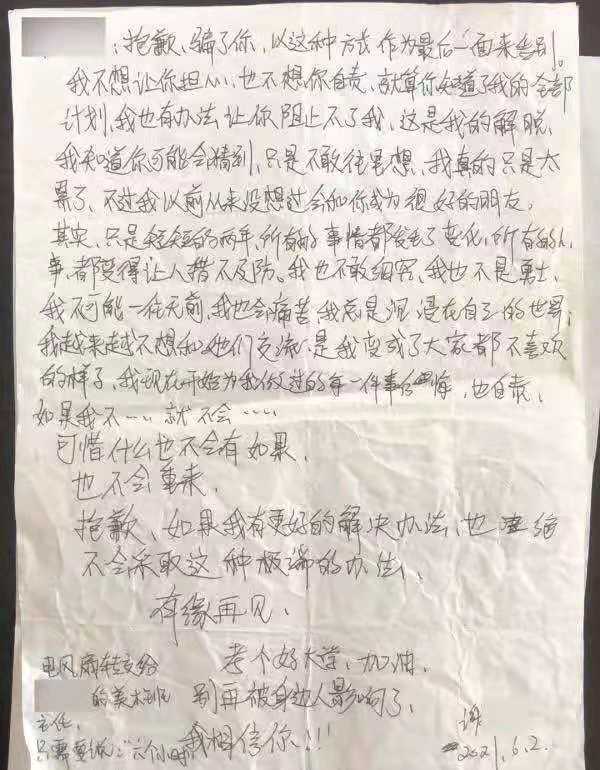 ：抱歉、骗了你，以这种方式作为最后一面来告别。
我不想让你担心、也不想你自责、就算你知道了我的全部
计划，我也有办法让你阻止不了我、这是我的解脱，
我知道你可能会猜到，只是不敢往里想、我真的只是太
累了、不过我以前从来没想过会和你成为很好的朋友，
其实、只是短短的两年，所有的事情都发生了变化，所有的人
事，都变得让人措不及防。我也不敢细究、我也不是勇士，
我不可能一往无前，我也会痛苦，我总是沉浸在自己的世界，
我越来越不想和她们交流，是我变成了大家都不喜欢
的样子，我现在开始为我做过的每一件事后悔，也自责、
如果我不…… 就不会……
可惜什么也不会有如果，
也不会重来，
抱歉、如果我有更好的解决办法、也绝
不会采取这种极端的办法、
有缘再见、
考个好大学、加油，
别再被身边人影响了、
我相信你！！！
电风扇转交给
的美术班
主任，
只需要 六个小时
2021.6.2.